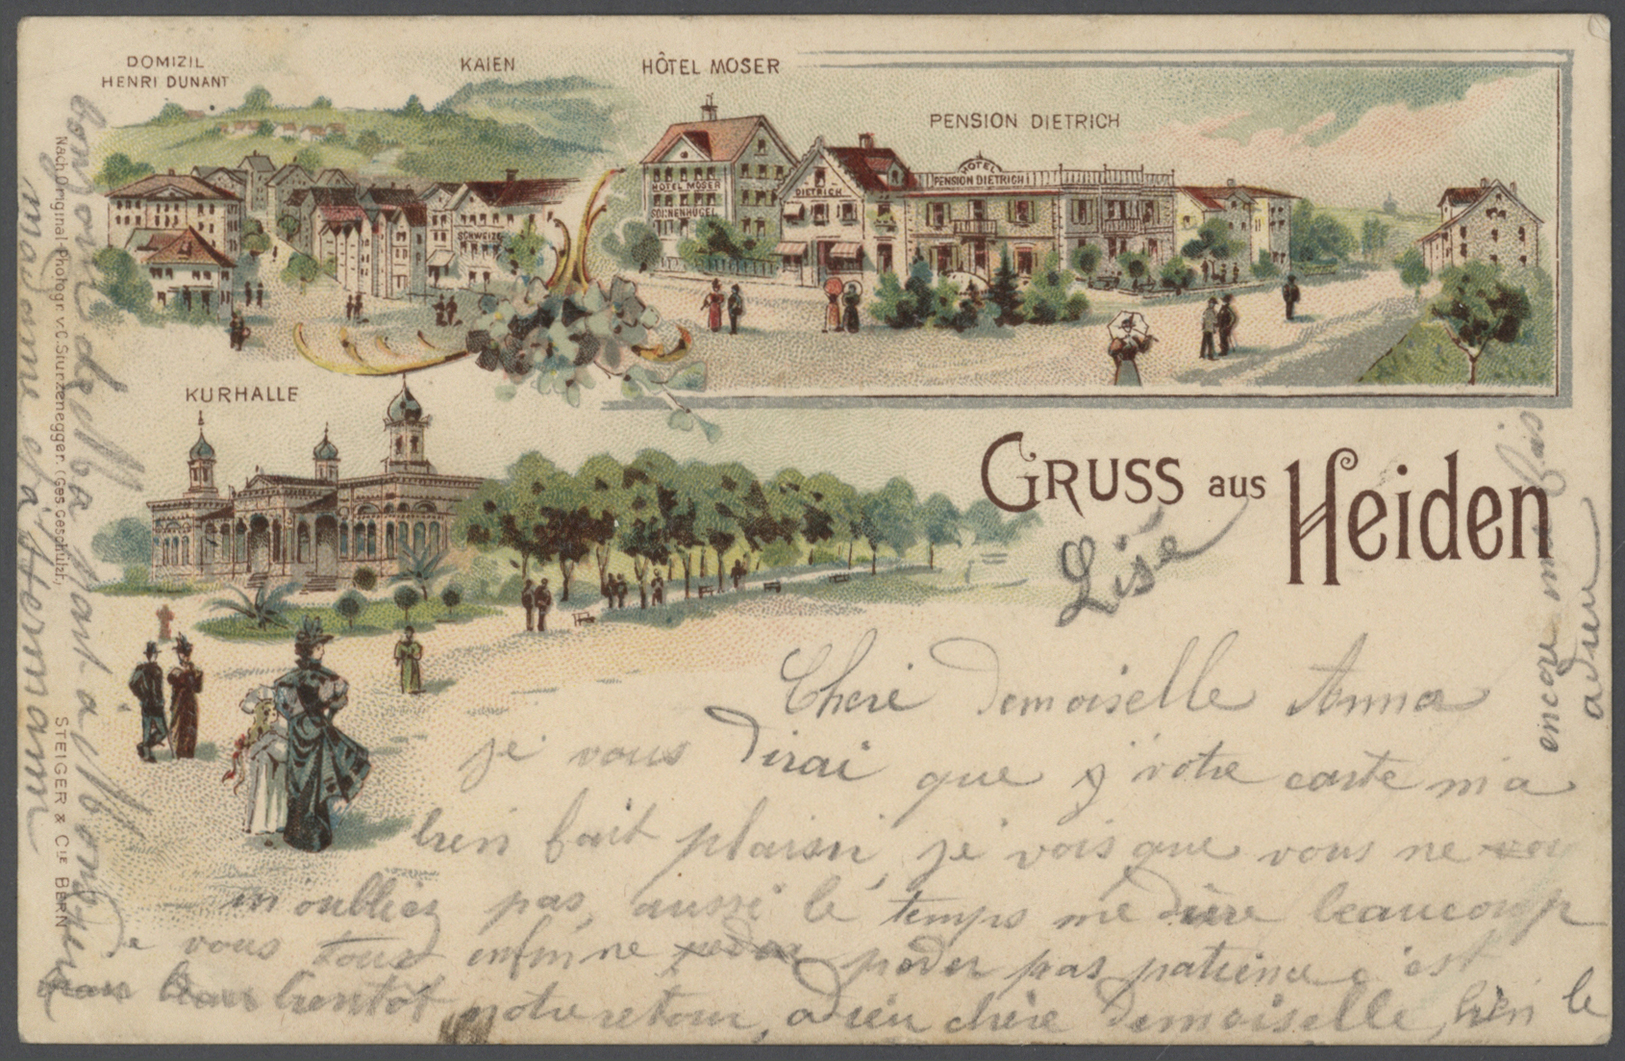 DOMIZIL
HENRI DUNANT
KAIEN
HÔTEL MOSER
PENSION DIETRICH
HOTEL MOSER
SONNENHÜGEL
DIETRICH
HÔTEL
PENSION DIETRICH
SCHWEIZE
KURHALLE
GRUSS aus Heiden
Lise
Cheré Demoiselle Anna
je vous Dirai que votre carte m'a
bien fait plaisir, je vois que vous ne
m'oubliez pas, aussi le temps me dure beaucoup
De vous tous enfin ne poder pas patience c'est
bientot notre retour, adieu chère Demoiselle, bien le
bonjour de Ma part a
madame et a Monsieur
encore une fois
adieu
Nach Original Photogr. v. C. Sturzenegger. (Ges. Geschützt),
STEIGER & CIE BERN